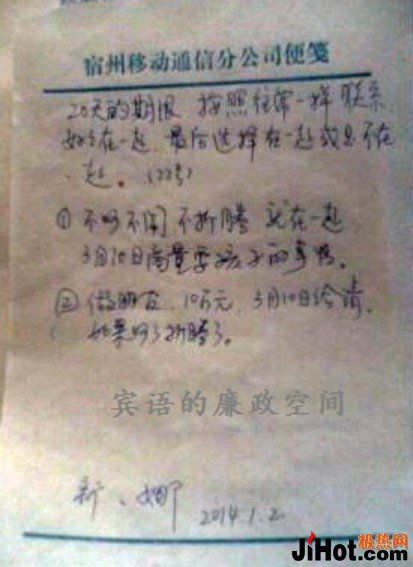 宿州移动通信分公司便笺
20天的期限 按照往常一样 联系
好好在一起 最后选择在一起或是不在
一起。(22号)
① 不吵不闹不折腾 就在一起
3月10日商量要孩子的事情。
② 做朋友,10万元,3月10日给清,
如果吵了折腾了。
宾语的廉政空间
新、娜 2014.1.2
极热网
JiHot.com